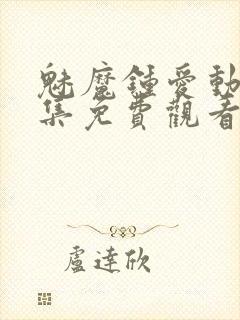 魅魔鍾愛動
集免費觀看
盧達欣